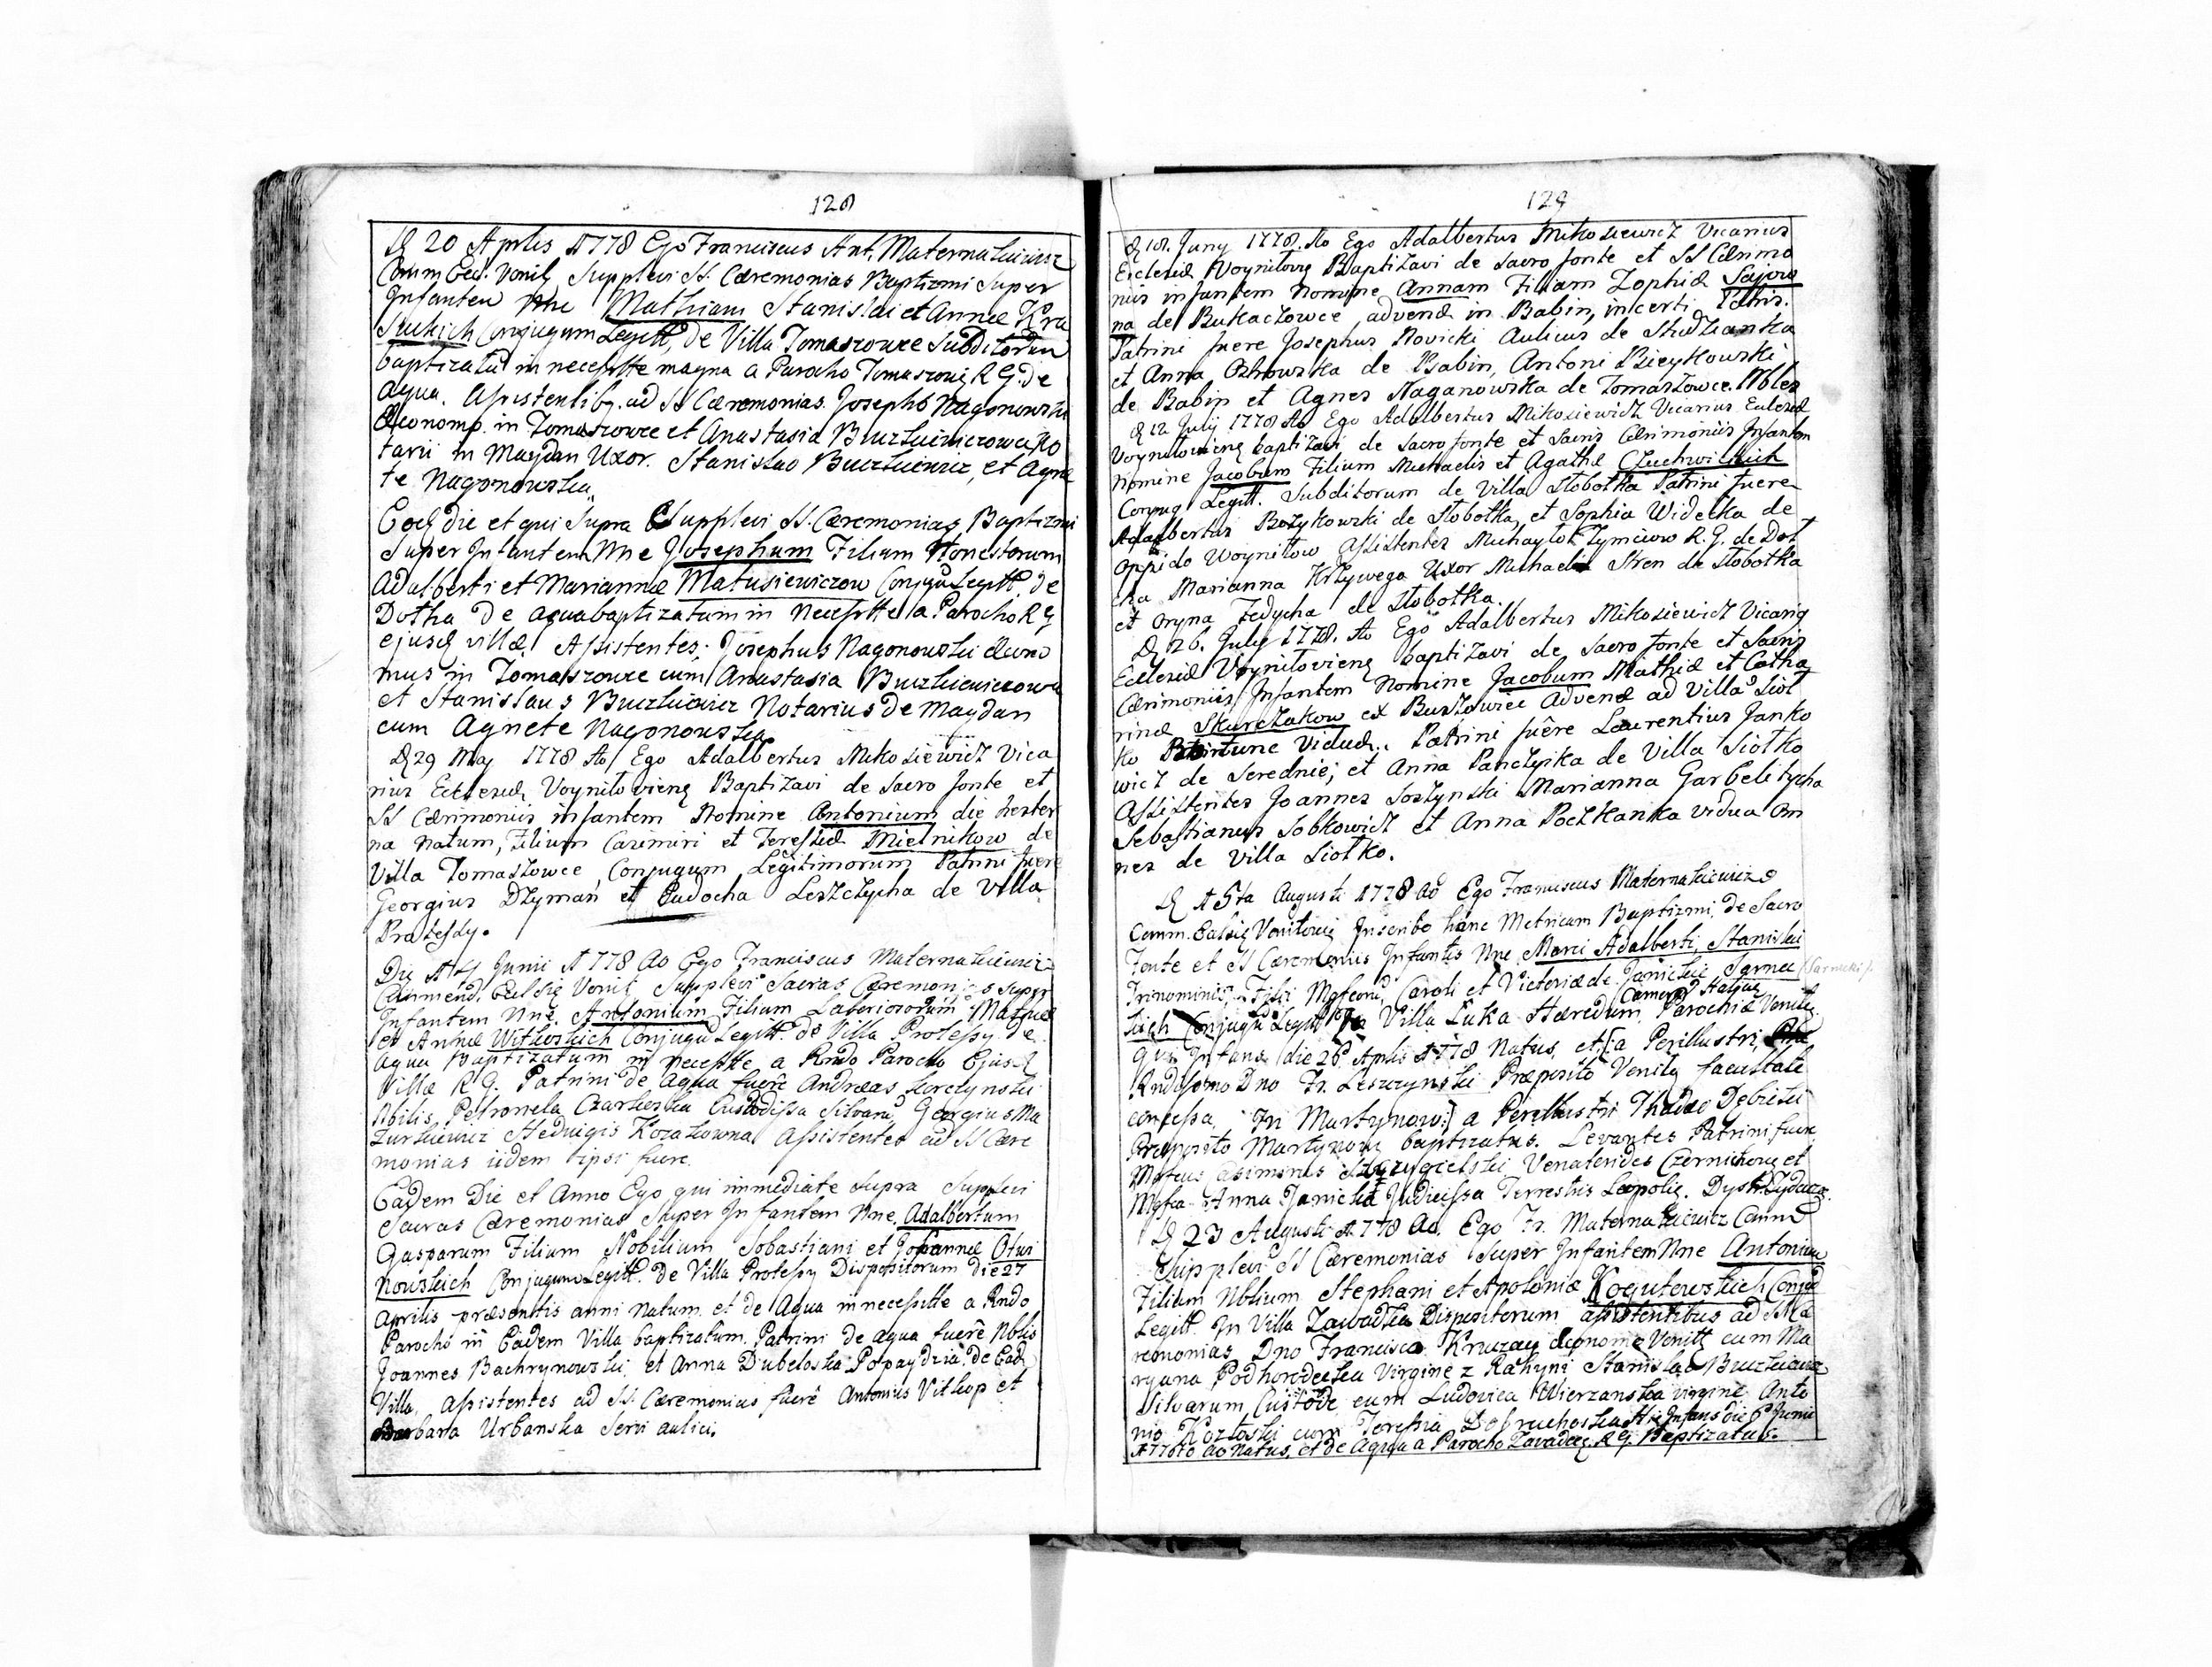 128
D 20 Aprlis 1778 Ego Franciscus Ant. Maternatkiewicz
Comm Eccl. Vonil. Supplevi SS. Cæremonias Baptizmi super
Infantem Nne Mathiam Stanislai et Annæ Kra
Conjugum Legitt, de Villa Tomaszowce Subditorum
baptizatū in necessitte magna a Parocho Tomaszovię R G. de
aqua. Assistentibq. ad SS Cæremonias. Josepho Nagonowski
Œconomo in Tomaszowce et Anastasia Buczkiewiczowa No
tarii in Maydan Uxor. Stanislao Buczkiewicz, et Agne
te Nagonowska
Eodē die et qui supra Supplevi SS. Cæremonias Baptizmi
Super Infantem Nne Josephum Filium Honestorum
Adalberti et Mariannæ Matusiewiczow Conjugū Legitt. de
Dołha de aqua baptizatum in necessitte a Parocho R G
ejusd villæ. Assistentes: Josephus Nagonowski Œcono
mus in Tomaszowce cum Anastasia Buczkiewiczowa
et Stanislaus Buczkiewicz Notarius de Maydan
cum Agnete Nagonowska
D 29 May 1778 Ao Ego Adalbertus Mikosiewicz Vica
rius Ecclesiæ Voyniloviens Baptizavi de Sacro fonte et
SS Cærimoniis infantem Nomine Antonium die hester
na natum, Filium Casimiri et Teressiæ Mielnikow de
Villa Tomaszowce Conjugum Legitimorum Patrini fuere
Georgius Dzyman et Pudocha Leszczycha de Villa
Protessy.
Die 14 Junii 1778 Ao Ego Franciscus Maternatkiewicz
Comend. Ecclsię Vonil. Supplevi Sacras Cæremonias super
Infantem Nne. Antonium Filium Laboriosorum Mathiæ
et Annæ Witkowskich Conjugū Legitt. de Villa Protessy de
aqua baptizatum in necessitte a Rndo Parocho Ejusd
Villæ R. G. Patrini de aqua fuere Andreas
Nbilis Petronela Czarkoska Custodissa Silvarū, Georgius Ma
zurkiewicz Hedvigis Kozakowna Assistentes ad SS Cære
monias iidem ipsi fuere.
Eadem Die et Anno Ego qui immediate supra Supplevi
Sacras Cæremonias Super Infantem Nne. Adalbertum
Gasparum Filium Nobilium Sobastiani et Johannæ Otwi
nowskich Conjugum Legitt. de Villa Protessy Dispositorum die 27
Aprilis præsentis anni natum et de Aqua in necessitte a Rndo
Parocho in Eadem Villa baptizatum. Patrini de aqua fuere Nblis
Joannes Bachrynowski et Anna Dubeloska Popaydzia de Ead
Villa. Assistentes ad SS. Cæremonias fuere Antonius Vithop et
Barbara Urbanska Servi aulici.
129
D 18. Juny 1778. Ao Ego Adalbertus Mikosiewicz Vicarius
Ecclesiæ Voynilovię Baptizavi de Sacro fonte et SS Cærimo
niis infantem Nomine Annam Filiam Zophiæ Sajow
na de Bukaczowce advenæ in Babin, incerti Patris.
Patrini fuere Josephus Novicki Aulicus de Studzianka
et Anna Ostrowska de Babin, Antoni Bieykowski
de Babin et Agnes Naganowska de Tomaszowce. Nbles
D 12 July 1778 Ao Ego Adalbertus Mikosiewicz Vicarius Ecclesiæ
Voyniloviens baptizavi de Sacro fonte et Sacris Cærimoniis Infantem
nomine Jacobum Filium Michaelis et Agathæ
Conjug Legitt. Subditorum de Villa Słobotka Patrini fuere
Adalbertus Bozykowski de Słobotka, et Sophia Widelka de
Oppido Woyniłow Assistentes Michayło Zymiow R. G. de Doł
ha Marianna Krzywega Uxor Michaelis Stren de Słobotka
et Oryna Fedycha de Słobotka.
D 26. July 1778. Ao Ego Adalbertus Mikosiewicz Vicariq
Ecclesiæ Voyniloviens baptizavi de Sacro fonte et Sacris
Cærimoniis Infantem Nomine Jacobum Mathiæ et Catha
rinæ Skurczakow ex Bursztowiec Advenæ ad Villā Siół
ko Viduæ. Patrini fuere Laurentius Janko
wicz de Serednie; et Anna Panczyska de Villa Siołko
Assistentes Joannes Soszynski Marianna Garbelitycha
Sebastianus Sobkowicz et Anna Poczkanka vidua Om
nes de Villa Siołko.
D 15ta Augusti 1778 Ao Ego Franciscus Maternatkiewicz
Comm. Ealsię Vonilovię Inscribo hanc Metricam Baptizmi, de Sacro
Fonte et SS Cæremoniis Infantis Nne Marci Adalberti, Stanislai
Trinominis, Filii Mgfcorū Caroli et Victoriæ de Janickie Sarnec (Sarnicki)
kich Conjugū Legitt Villa Łuka Hæredum Parochiæ Vonilę
Qui Infans die 26 Aplis 1778 Natus, et [: a Perillustri,
Rndssmo Dno Fr. Leszczynski Præposito Venilę facultate
concessa, In Martynow :] a Perillustri Thadeo Dębicki
Præposito Martynovię baptizatus. Levantes Patrini fuere
Mgfcus Casimirus Venatorides Czernichovię et
Mgfca Anna Janicka Judicissa Terrestris Leopolię. Dystr. Zydacz.
D 23 Augusti 1778 Ao. Ego Fr. Maternatkiewicz Comm
Supplevi SS Cæremonias Super Infantem Nne Antonium
Filium Nblium Stephani et Apoloniæ Kogutowskich Conjug
Legitt. In Villa Zawadka Dispositorum assistentibus ad SS Cæ
remonias Dno Francisco Kruczay œconomo Vonilę cum Ma
ryana Podhorodecka Virgine z Rahyni Stanislao Buczkiewicz
Silvarum Custode cum Ludovica Wierzanska virgine Anto
nio Kozłoski cum Teressia Dobruchoska Hic Infans die 6 Junii
1778 Ao Natus, et de Aqua a Parocho Zavadecę. R G. Baptizatus.